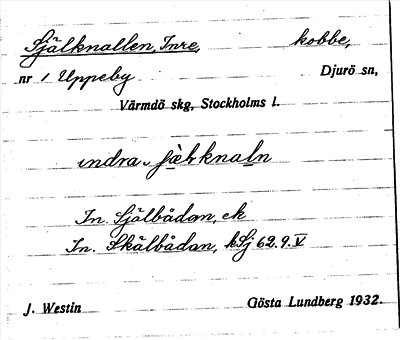 Själknallen, Inre, kobbe,
nr 1 Uppeby Djurö sn,
Värmdö skg, Stockholms l.
ındra
In. Själbådan, ek
In. Skälbådan, kSj 62.9.V
J. Westin Gösta Lundberg 1932.